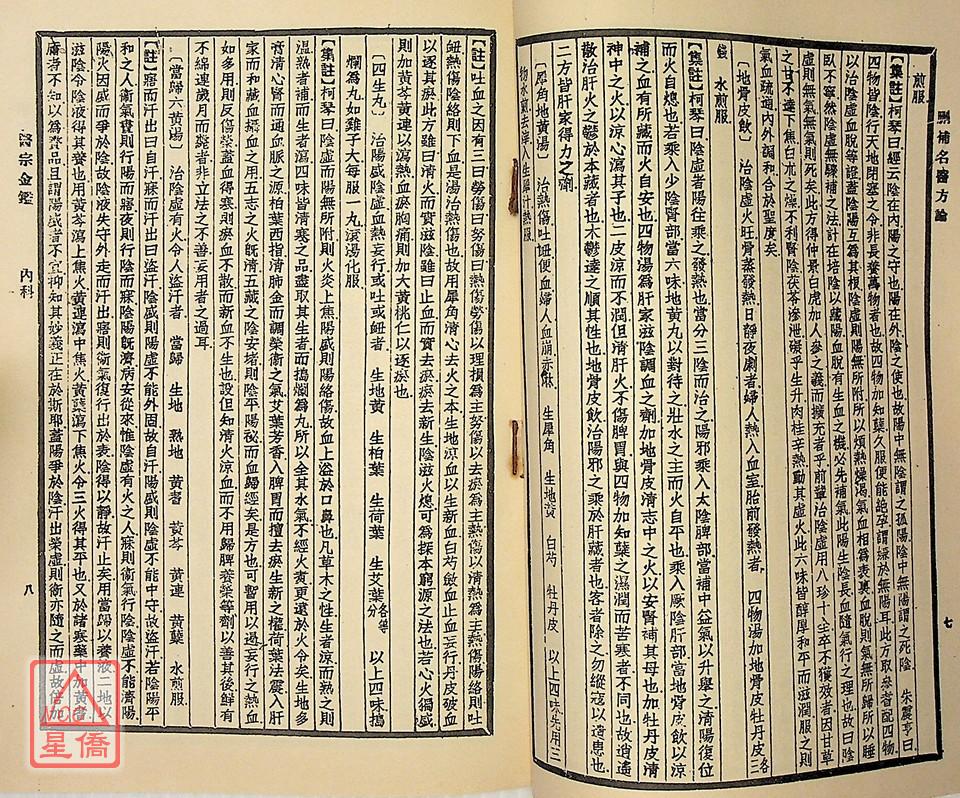 刪補名醫方論
七
煎服
【集註】柯琴曰經云陰在內陽之守也陽在外陰之使也故陽中無陰謂之孤陽陰中無陽謂之死陰
朱震亨曰
四物皆陰行天地閉塞之令非長養萬物者也故四物加知蘗久服便能絕孕謂嫌於無陽耳此方取參者配四物
以治陰虛血脫等證蓋陰陽互為其根陰虛則陽無所附所以煩熱燥渴氣血相為表裏血脫則氣無所歸所以睡
臥不寧然陰虛無驟補之法計在培陰以藏陽血脫有生血之機必先補氣此陽生陰長血隨氣行之理也故曰陰
虛則無氣無氣則死矣此方得仲景白虎加人參之義而擴充者乎前輩治陰虛用八珍十全卒不獲效者因甘草
之甘不達下焦白朮之燥不利腎陰茯苓滲泄礙乎生升肉桂辛熱動其虛火此六味皆醇厚和平而滋潤服之則
氣血疏通內外調和合於聖度矣
〔地骨皮飲〕 治陰虛火旺骨蒸發熱日靜夜劇者婦人熱入血室胎前發熱者
四物湯加地骨皮牡丹皮各三
錢 水煎服
【集註】柯琴曰陰虛者陽往乘之發熱也當分三陰而治之陽邪乘入太陰脾部當補中益氣以升舉之清陽復位
而火自熄也若乘入少陰腎部當六味地黃丸以對待之壯水之主而火自平也乘入厥陰肝部當地骨皮飲以涼
補之血有所藏而火自安也四物湯為肝家滋陰調血之劑加地骨皮清志中之火以安腎補其母也加牡丹皮清
神中之火以涼心瀉其子也二皮涼而不潤但清肝火不傷脾胃與四物加知蘗之濕潤而苦寒者不同也故逍遙
散治肝火之鬱於本藏者也木鬱達之順其性也地骨皮飲治陽邪之乘於肝藏者也客者除之勿縱寇以遺患也
二方皆肝家得力之劑
〔犀角地黃湯〕 治熱傷吐衄便血婦人血崩赤淋
生犀角 生地黃 白芍 牡丹皮 以上四味先用三
物水煎去滓入生犀汁熱服
【註】吐血之因有三曰勞傷曰努傷曰熱傷勞傷以理損為主努傷以去瘀為主熱傷以清熱為主熱傷陽絡則吐
衄熱傷陰絡則下血是湯治熱傷也故用犀角清心去火之本生地涼血以生新血白芍斂血止血妄行丹皮破血
以逐其瘀此方雖曰清火而實滋陰雖曰止血而實去瘀瘀去新生陰滋火熄可為探本窮源之法也若心火獨盛
則加黃芩黃連以瀉熱血瘀胸痛則加大黃桃仁以逐瘀也
〔四生丸〕 治陽盛陰虛血熱妄行或吐或衄者
生地黃 生柏葉 生荷葉 生艾葉各等分 以上四味搗
爛為丸如雞子大每服一丸滾湯化服
【集註】柯琴曰陰虛而陽無所附則火炎上焦陽盛則陽絡傷故血上溢於口鼻也凡草木之性生者涼而熟之則
溫熟者補而生者瀉四味皆清寒之品盡取其生者而搗爛為丸所以全其水氣不經火黃更遠於火令矣生地多
膏清心腎而通血脈之源柏葉西指清肺金而調榮衛之氣艾葉芳香入脾胃而擅去瘀生新之權荷葉法震入肝
家而和藏血攝血之用五志之火既清五藏之陰安堵則陰平陽秘而血歸經矣是方也可暫用以遏妄行之熱血
如多用則反傷榮蓋血得寒則瘀血不散而新血不生也設但知清火涼血而不用歸脾養榮等劑以善其後鮮有
不綿連歲月而斃者非立法之不善妄用者之過耳
〔當歸六黃湯〕 治陰虛有火令人盜汗者
當歸 生地 熟地 黃耆 黃芩 黃連 黃蘗 水煎服
【註】寤而汗出曰自汗寐而汗出曰盜汗陰盛則陽虛不能外固故自汗陽盛則陰虛不能中守故盜汗若陰陽平
和之人衛氣晝則行陽而寤夜則行陰而寐陰陽既濟病安從來惟陰虛有火之人寐則衛氣行陰陰虛不能濟陽
陽火因盛而爭於陰故陰液失守外走而汗出寤則衛氣復行出於表陰得以靜故汗止矣用當歸以養液二地以
滋陰令陰液得其養也用黃芩瀉上焦火黃連瀉中焦火黃蘗瀉下焦火令三火得其平也又於諸寒藥中加黃耆
庸者不知以為贅品且謂陽盛者不宜抑知其妙義正在於斯耶蓋陽爭於陰汗出榮虛則衛亦隨之而虛故倍加
醫宗金鑑
內科
八
星僑